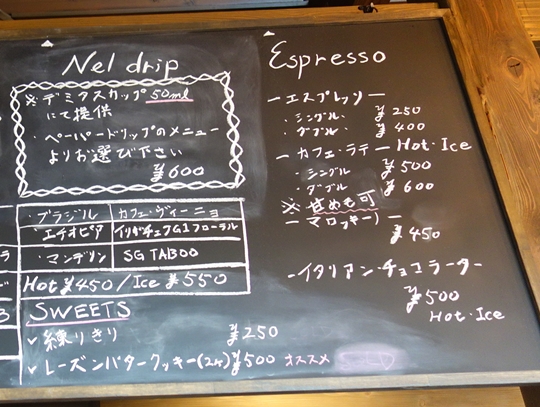 Nel drip
※デミタスカップ 50ml
にて提供
・ペーパードリップのメニュー
よりお選び下さい
¥600
・ブラジル カフェ・ヴィーニョ
・エチオピア イリガチェフG1フローラル
・マンデリン SG TABOO
Hot ¥450/Ice ¥550
SWEETS
✓練りきり ¥250
✓レーズンバタークッキー(2ヶ) ¥500 オススメ
Espresso
ーエスプレッソー
・シングル ¥250
・ダブル ¥400
ーカフェ・ラテー Hot・Ice
・シングル ¥500
・ダブル ¥600
※甘めも可
ーマロッキーノー
¥450
ーイタリアン・チョコラーター
¥500
Hot・Ice